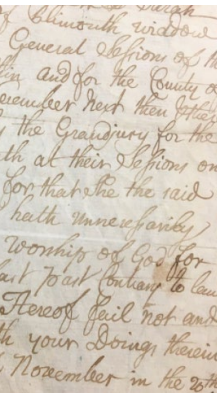 of Plimouth widdow
General Sessions of th
and for the County o
December next then &
the Grandjury for the
th at their Sessions on
for that she the said
hath unnecessarily
worship of God for
ast past Contrary to law
Hereof fail not and
th your Doings therein
November in the 20th